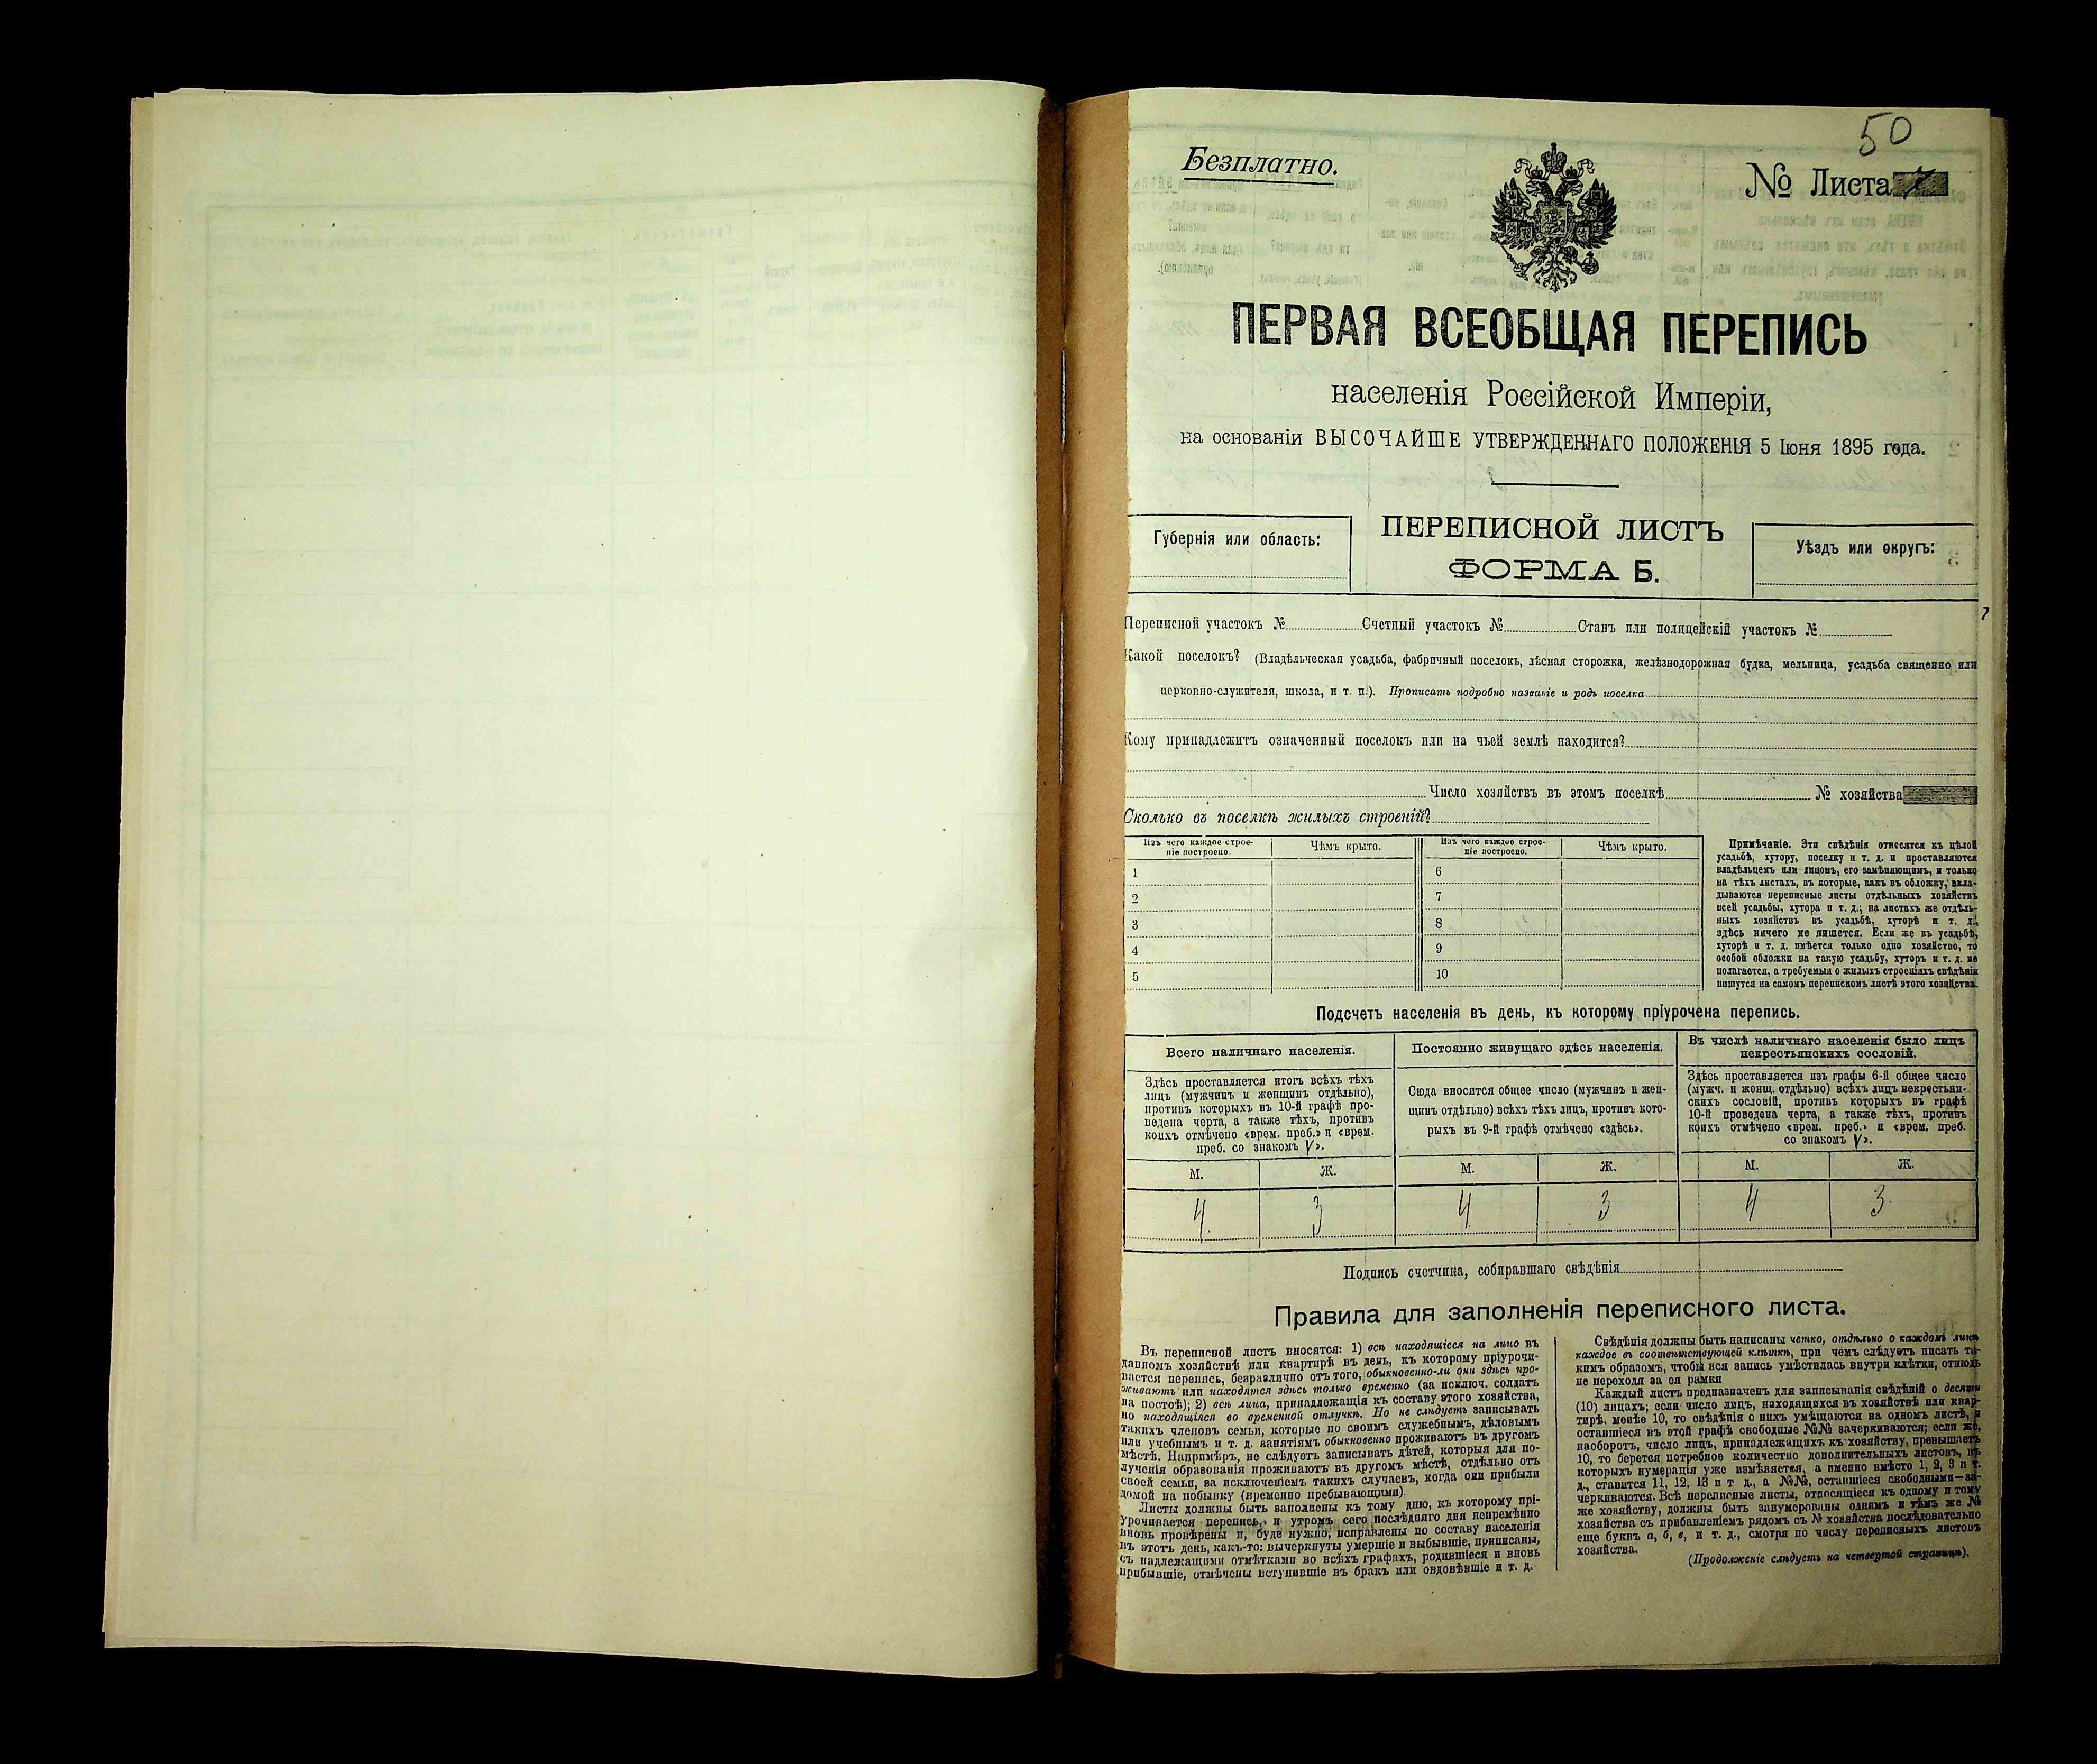 50
Безплатно.
№ Листа
ПЕРВАЯ ВСЕОБЩАЯ ПЕРЕПИСЬ
населенія Россійской Имперіи,
на основаніи ВЫСОЧАЙШЕ УТВЕРЖДЕННАГО ПОЛОЖЕНІЯ 5 Іюня 1895 года.
Губернія или область:
ПЕРЕПИСНОЙ ЛИСТЪ
ФОРМА Б.
Уѣздъ или округъ:
Переписной участокъ № Счетный участокъ № Станъ или полицейскій участокъ №
Какой поселокъ? (Владѣльческая усадьба, фабричный поселокъ, лѣсная сторожка, желѣзнодорожная будка, мельница, усадьба священно или
церковно-служителя, школа, и т. п.). Прописать подробно названіе и родъ поселка
Кому принадлежитъ означенный поселокъ или на чьей землѣ находится?
Число хозяйствъ въ этомъ поселкѣ № хозяйства
Сколько въ поселкѣ жилыхъ строеній?
Изъ чего каждое строе-
ніе построено.
Чѣмъ крыто.
Изъ чего каждое строе-
ніе построено.
Чѣмъ крыто.
1 6
2 7
3 8
4 9
5 10
Примѣчаніе. Эти свѣдѣнія относятся къ цѣлой
усадьбѣ, хутору, поселку и т. д. и проставляются
владѣльцемъ или лицомъ, его замѣняющимъ, и только
на тѣхъ листахъ, въ которые, какъ въ обложку, вкла-
дываются переписные листы отдѣльныхъ хозяйствъ
всей усадьбы, хутора и т. д.; на листахъ же отдѣль-
ныхъ хозяйствъ въ усадьбѣ, хуторѣ и т. д.,
здѣсь ничего не пишется. Если же въ усадьбѣ,
хуторѣ и т. д. имѣется только одно хозяйство, то
особой обложки на такую усадьбу, хуторъ и т. д. не
полагается, а требуемыя о жилыхъ строеніяхъ свѣдѣнія
пишутся на самомъ переписномъ листѣ этого хозяйства.
Подсчетъ населенія въ день, къ которому пріурочена перепись.
Всего наличнаго населенія.
Постоянно живущаго здѣсь населенія.
Въ числѣ наличнаго населенія было лицъ
некрестьянскихъ сословій.
Здѣсь проставляется итогъ всѣхъ тѣхъ
лицъ (мужчинъ и женщинъ отдѣльно),
противъ которыхъ въ 10-й графѣ про-
ведена черта, а также тѣхъ, противъ
коихъ отмѣчено «врем. преб.» и «врем.
преб. со знакомъ V».
Сюда вносится общее число (мужчинъ и жен-
щинъ отдѣльно) всѣхъ тѣхъ лицъ, противъ кото-
рыхъ въ 9-й графѣ отмѣчено «здѣсь».
Здѣсь проставляется изъ графы 6-й общее число
(мужч. и женщ. отдѣльно) всѣхъ лицъ некрестьян-
скихъ сословій, противъ которыхъ въ графѣ
10-й проведена черта, а также тѣхъ, противъ
коихъ отмѣчено «врем. преб.» и «врем. преб.
со знакомъ V».
М. Ж. М. Ж. М. Ж.
4 3 4 3 4 3
Подпись счетчика, собиравшаго свѣдѣнія
Правила для заполненія переписного листа.
Въ переписной листъ вносятся: 1) всѣ находящіеся на лицо въ
данномъ хозяйствѣ или квартирѣ въ день, къ которому пріурочи-
вается перепись, безразлично отъ того, обыкновенно-ли они здѣсь про-
живаютъ или находятся здѣсь только временно (за исключ. солдатъ
на постоѣ); 2) всѣ лица, принадлежащія къ составу этого хозяйства,
но находящіяся во временной отлучкѣ. Но не слѣдуетъ записывать
такихъ членовъ семьи, которые по своимъ служебнымъ, дѣловымъ
или учебнымъ и т. д. занятіямъ обыкновенно проживаютъ въ другомъ
мѣстѣ. Напримѣръ, не слѣдуетъ записывать дѣтей, которыя для по-
лученія образованія проживаютъ въ другомъ мѣстѣ, отдѣльно отъ
своей семьи, за исключеніемъ такихъ случаевъ, когда они прибыли
домой на побывку (временно пребывающими).
Листы должны быть заполнены къ тому дню, къ которому прі-
урочивается перепись, и утромъ сего послѣдняго дня непремѣнно
вновь провѣрены и, буде нужно, исправлены по составу населенія
въ этотъ день, какъ-то: вычеркнуты умершіе и выбывшіе, приписаны,
съ надлежащими отмѣтками во всѣхъ графахъ, родившіеся и вновь
прибывшіе, отмѣчены вступившіе въ бракъ или овдовѣвшіе и т. д.
Свѣдѣнія должны быть написаны четко, отдѣльно о каждомъ лицѣ
каждое въ соотвѣтствующей клѣткѣ, при чемъ слѣдуетъ писать та-
кимъ образомъ, чтобы вся запись умѣстилась внутри клѣтки, отнюдь
не переходя за ея рамки
Каждый листъ предназначенъ для записыванія свѣдѣній о десяти
(10) лицахъ; если число лицъ, находящихся въ хозяйствѣ или квар-
тирѣ, менѣе 10, то свѣдѣнія о нихъ умѣщаются на одномъ листѣ, и
оставшіеся въ этой графѣ свободные №№ зачеркиваются; если же,
наоборотъ, число лицъ, принадлежащихъ къ хозяйству, превышаетъ
10, то берется потребное количество дополнительныхъ листовъ, въ
которыхъ нумерація уже измѣняется, а именно вмѣсто 1, 2, 3 и т.
д., ставится 11, 12, 13 и т д., а №№, оставшіеся свободными—за-
черкиваются. Всѣ переписные листы, относящіеся къ одному и тому
же хозяйству, должны быть занумерованы однимъ и тѣмъ же №
хозяйства съ прибавленіемъ рядомъ съ № хозяйства послѣдовательно
еще буквъ а, б, в, и т. д., смотря по числу переписныхъ листовъ
хозяйства.
(Продолженіе слѣдуетъ на четвертой страницѣ).